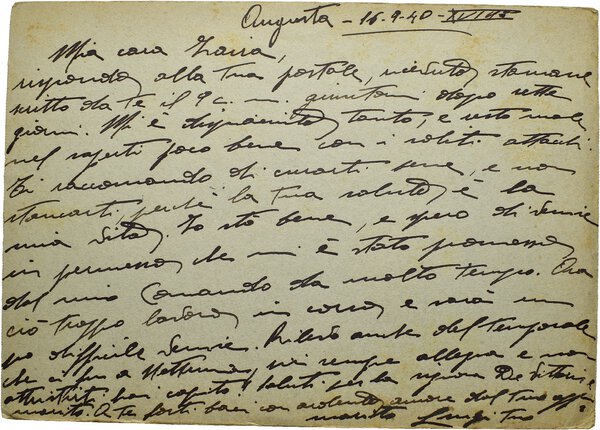 Augusta - 16-9-40 - XVIII
Mia cara Zarra,
rispondo alla tua postale, ricevuta stamane
scritto da te il 9 c. m. giuntomi dopo sette
giorni. Mi è dispiaciuto tanto, e resto male
nel saperti poco bene con i soliti attacchi.
Ti raccomando di curarti bene, e non
stancarti, perché la tua salute è la
mia vita. Io sto bene, e spero di venire
in permesso che mi è stato promesso
dal mio Comando da molto tempo. Ora
ciò troppo lavoro in corso e sarà un
po difficile venire. Rilevo anche del temporale
che ci fu a Nettuno, sii sempre allegra e non
attristirti hai capito? Saluti per la signora De Vittoris e
marito. A te forti baci con ardente amore dal tuo aff.
marito Luigi tuo